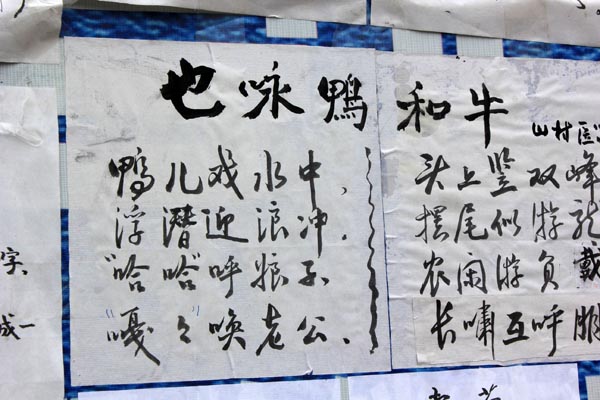 也咏鸭和牛
山村医
鸭儿戏水中，
浮潜迎浪冲。
“哈哈”呼娘子，
“嘎々”唤老公。
头上竖双峰
摆尾似游龙
农闲游负戴
长啸互呼朋
字、
成一